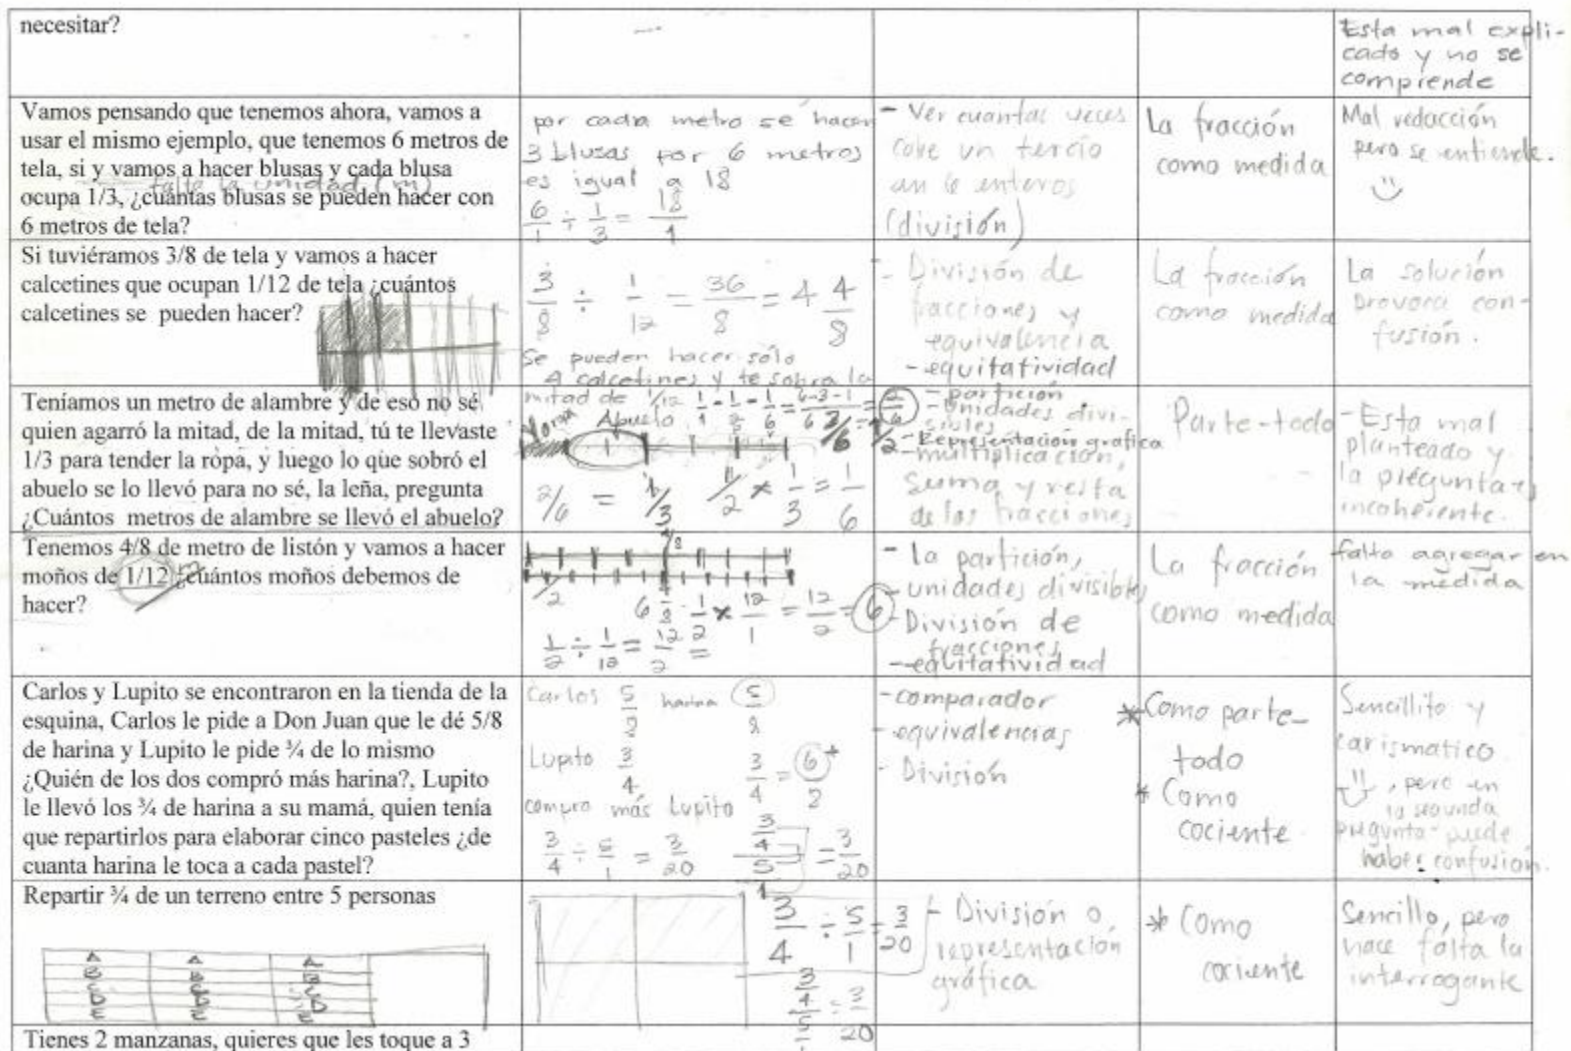 necesitar?
Esta mal expli-
cado y no se
comprende
Vamos pensando que tenemos ahora, vamos a
usar el mismo ejemplo, que tenemos 6 metros de
tela, si y vamos a hacer blusas y cada blusa
falto la unidad (m)
ocupa 1/3, ¿cuántas blusas se pueden hacer con
6 metros de tela?
por cada metro se hacen
3 blusas por 6 metros
es igual a 18
6/1 ÷ 1/3 = 18/1
- Ver cuantas veces
cabe un tercio
en 6 enteros
(división)
La fracción
como medida
Mal redacción
pero se entiende.
Si tuviéramos 3/8 de tela y vamos a hacer
calcetines que ocupan 1/12 de tela ¿cuántos
calcetines se pueden hacer?
3/8 ÷ 1/12 = 36/8 = 4 4/8
Se pueden hacer solo
4 calcetines y te sobra la
mitad de 1/12
- División de
fracciones y
equivalencia
- equitatividad
La fracción
como medida
La solución
provoca con-
fusión.
Teníamos un metro de alambre y de eso no sé
quien agarró la mitad, de la mitad, tú te llevaste
1/3 para tender la ropa, y luego lo que sobró el
abuelo se lo llevó para no sé, la leña, pregunta
¿Cuántos metros de alambre se llevó el abuelo?
1/1 - 1/2 - 1/6 = 6-3-1/6 = 2/6
Abuelo
2/6 = 1/3 1/2 × 1/3 = 1/6
- partición
- Unidades divi-
sibles
- Representación grafica
- multiplicación,
suma y resta
de las fracciones
Parte-todo
- Esta mal
planteado y
la pregunta es
incoherente.
Tenemos 4/8 de metro de listón y vamos a hacer
moños de 1/12 ¿cuántos moños debemos de
hacer?
4/8
1/2 6 4/8 = 1/2 × 12/1 = 12/2 = 6
1/2 ÷ 1/12 = 12/2 =
- la partición,
- unidades divisibles
- División de
fracciones
- equitatividad
La fracción
como medida
falto agregar en
la medida
Carlos y Lupito se encontraron en la tienda de la
esquina, Carlos le pide a Don Juan que le dé 5/8
de harina y Lupito le pide ¾ de lo mismo
¿Quién de los dos compró más harina?, Lupito
le llevó los ¾ de harina a su mamá, quien tenía
que repartirlos para elaborar cinco pasteles ¿de
cuanta harina le toca a cada pastel?
Carlos 5/8 harina 5/8
Lupito 3/4 3/4 = 6/8 +
compro más Lupito
3/4 ÷ 5/1 = 3/20 3/4 / 5/1 = 3/20
- comparador
- equivalencias
- División
* Como parte-
todo
* Como
cociente
Sencillito y
carismatico
, pero en
la segunda
pregunta puede
haber confusión.
Repartir ¾ de un terreno entre 5 personas
A A A
B B B
C C C
D D D
E E E
3/4 ÷ 5/1 = 3/20
3/4 / 5/1 = 3/20
- División o
representación
gráfica
* Como
cociente
Sencillo, pero
hace falta la
interrogante
Tienes 2 manzanas, quieres que les toque a 3